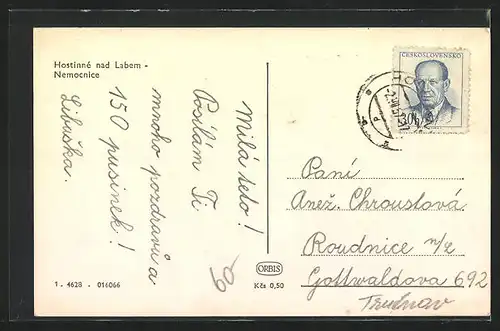 Hostinné nad Labem -
Nemocnice
Milá teto!
Posílám Ti
mnoho pozdravů a
150 pusinek!
Libuška.
1. 4628 - 016066
ORBIS
Kčs 0,50
ČESKOSLOVENSKO
30h
Paní
Anež. Chroustová
Roudnice n/L
Gottwaldova 692
Trutnov